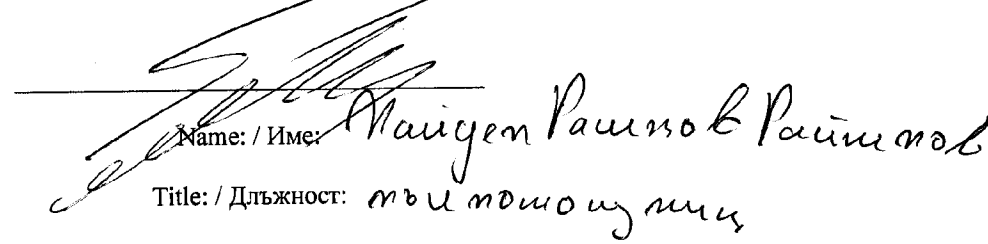 Name: / Име: Найден Рашков Райчков
Title: / Длъжност: пълномощник